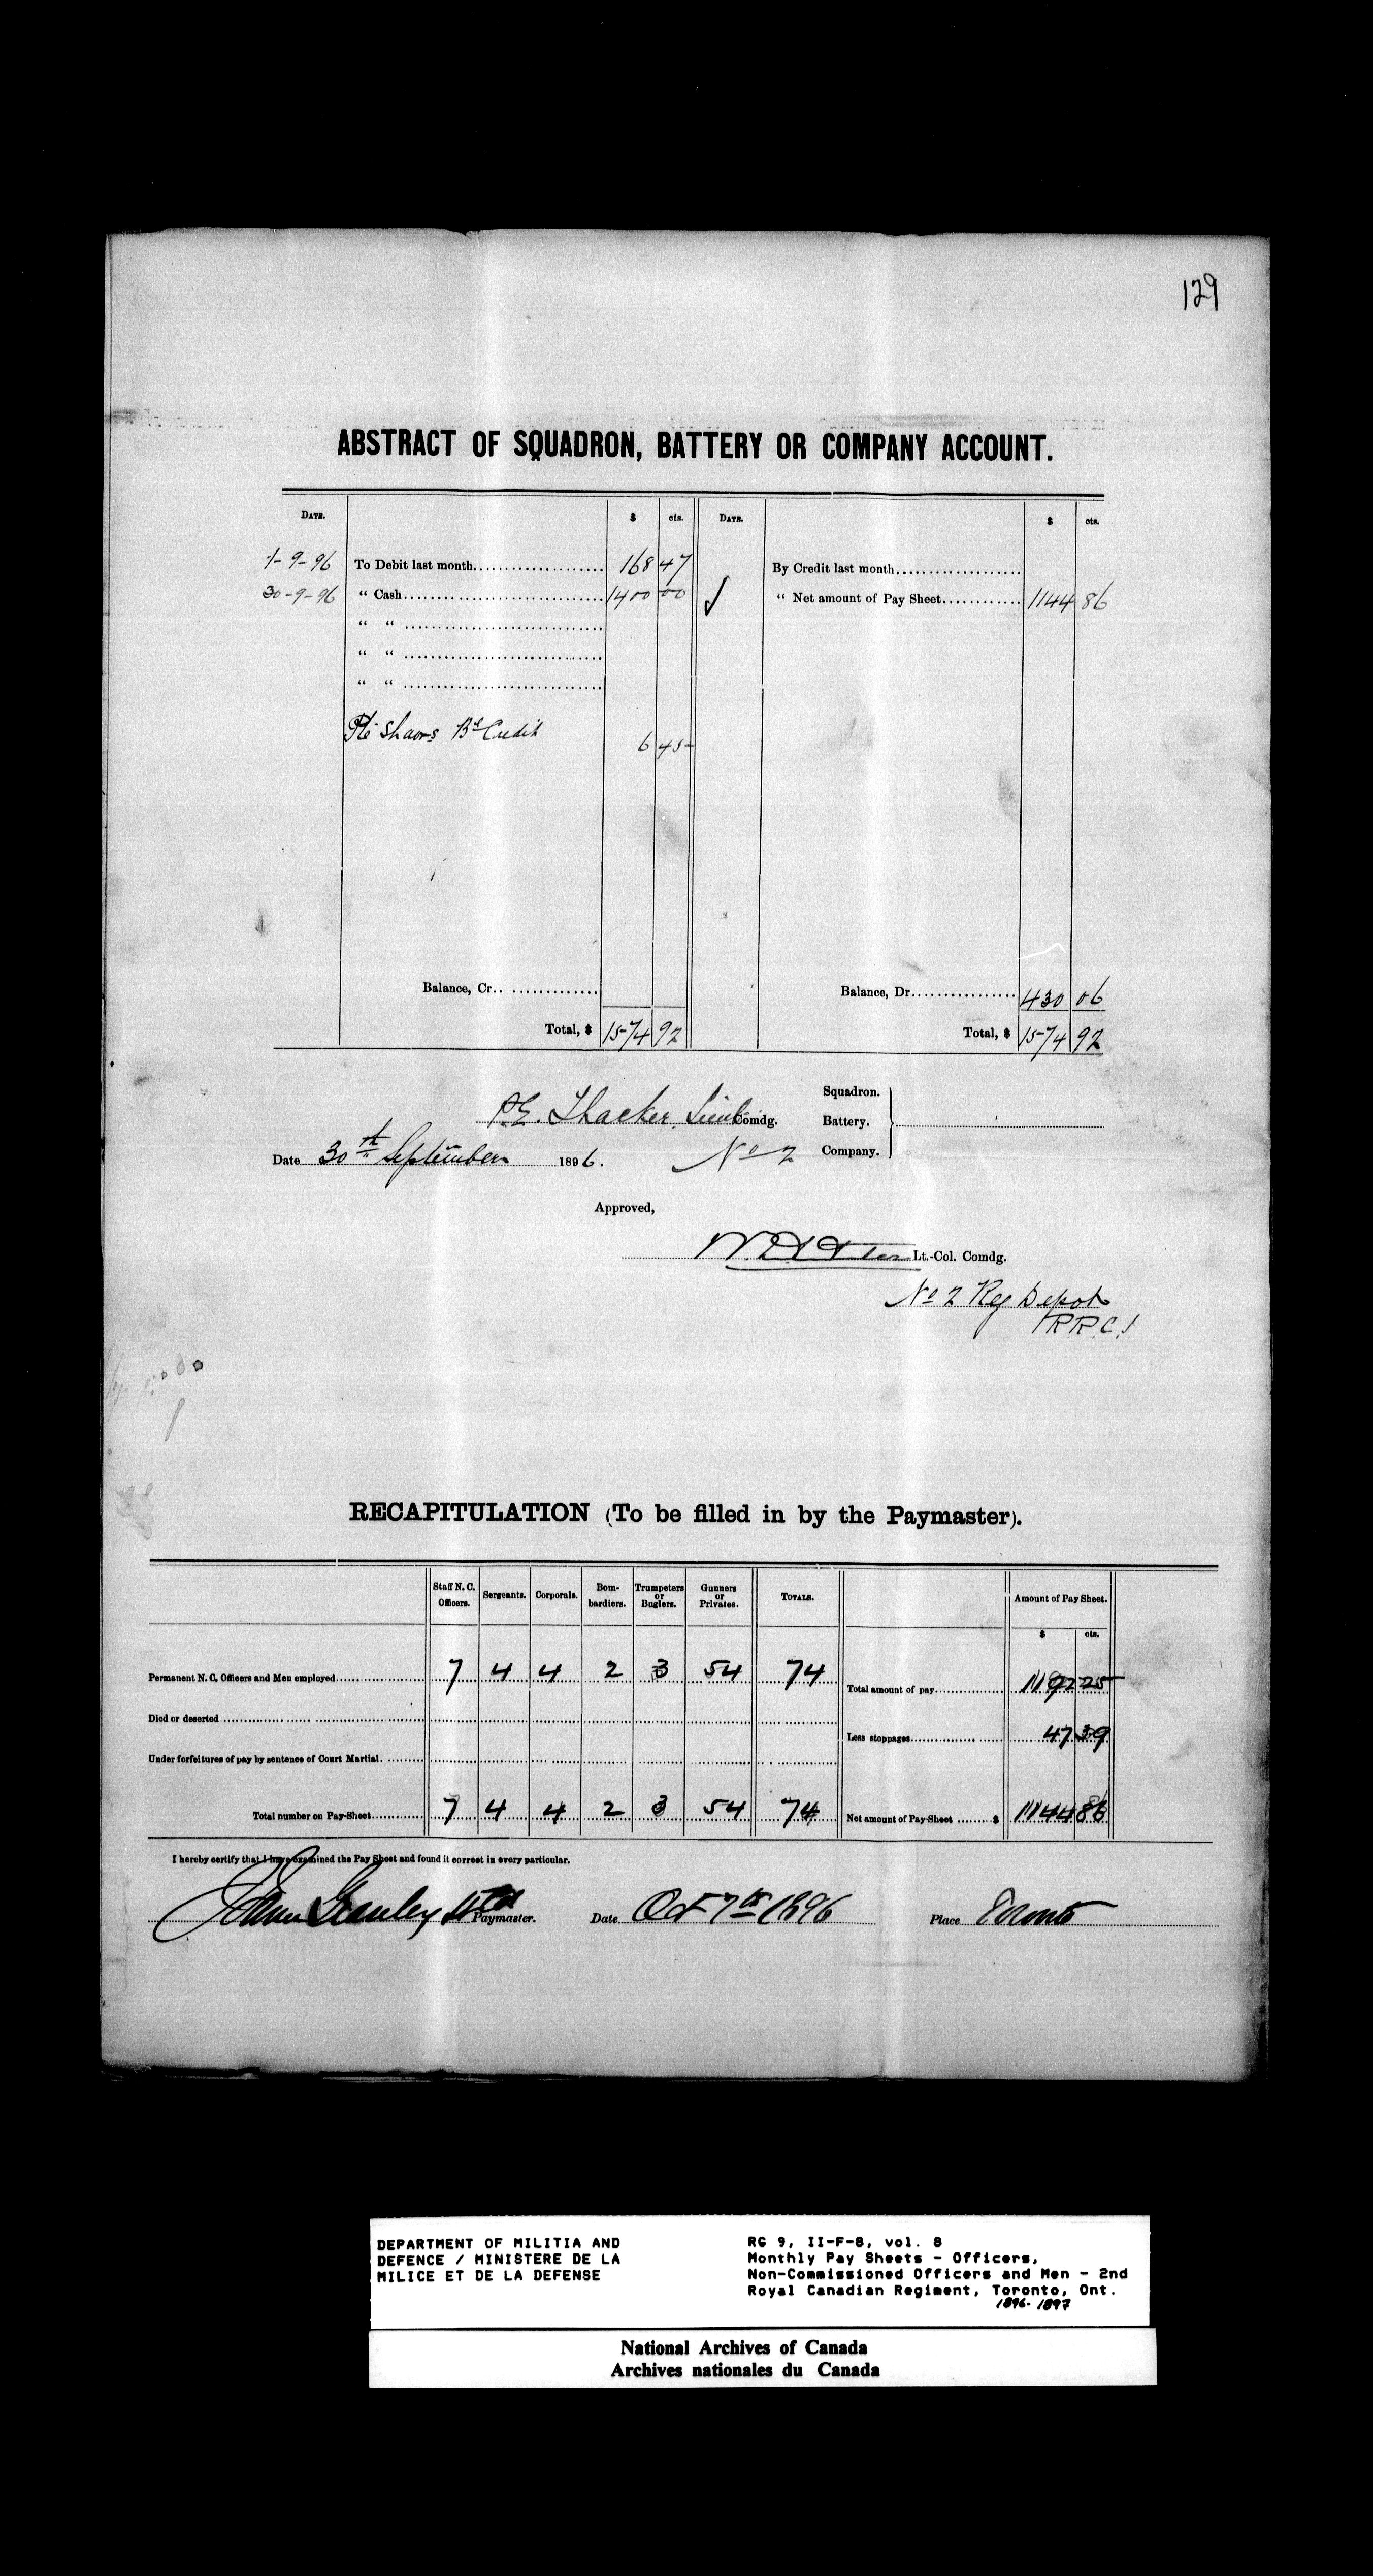 129
ABSTRACT OF SQUADRON, BATTERY OR COMPANY ACCOUNT.
DATE. $ cts. DATE. $ cts.
1-9-96 To Debit last month 168 47 By Credit last month
30-9-96 " Cash 1400 00 ✓ " Net amount of Pay Sheet 1144 86
" "
" "
" "
Pte Shaors Bl Credit 6 45
Balance, Cr. Balance, Dr. 430 06
Total, $ 1574 92 Total, $ 1574 92
P.E. Thacker Lieut Comdg. Squadron.
Battery.
Date 30th September 1896. No 2 Company.
Approved,
Lt.-Col. Comdg.
No 2 Reg Depot
R.R.C.I
RECAPITULATION (To be filled in by the Paymaster).
Staff N. C. Officers. Sergeants. Corporals. Bom-bardiers. Trumpeters or Buglers. Gunners or Privates. TOTALS. Amount of Pay Sheet.
$ cts.
Permanent N. C. Officers and Men employed 7 4 4 2 3 54 74 Total amount of pay 1192 25
Died or deserted Less stoppages 47 39
Under forfeitures of pay by sentence of Court Martial
Total number on Pay-Sheet 7 4 4 2 3 54 74 Net amount of Pay-Sheet $ 1144 86
I hereby certify that I have examined the Pay Sheet and found it correct in every particular.
Paymaster. Date Oct 7th 1896 Place Toronto
DEPARTMENT OF MILITIA AND
DEFENCE / MINISTERE DE LA
MILICE ET DE LA DEFENSE
RG 9, II-F-8, vol. 8
Monthly Pay Sheets - Officers,
Non-Commissioned Officers and Men - 2nd
Royal Canadian Regiment, Toronto, Ont.
1896-1897
National Archives of Canada
Archives nationales du Canada